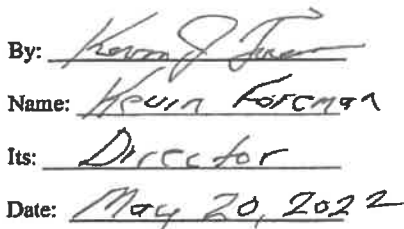 By: Kevin J
Name: Kevin Foreman
Its: Director
Date: May 20, 2022